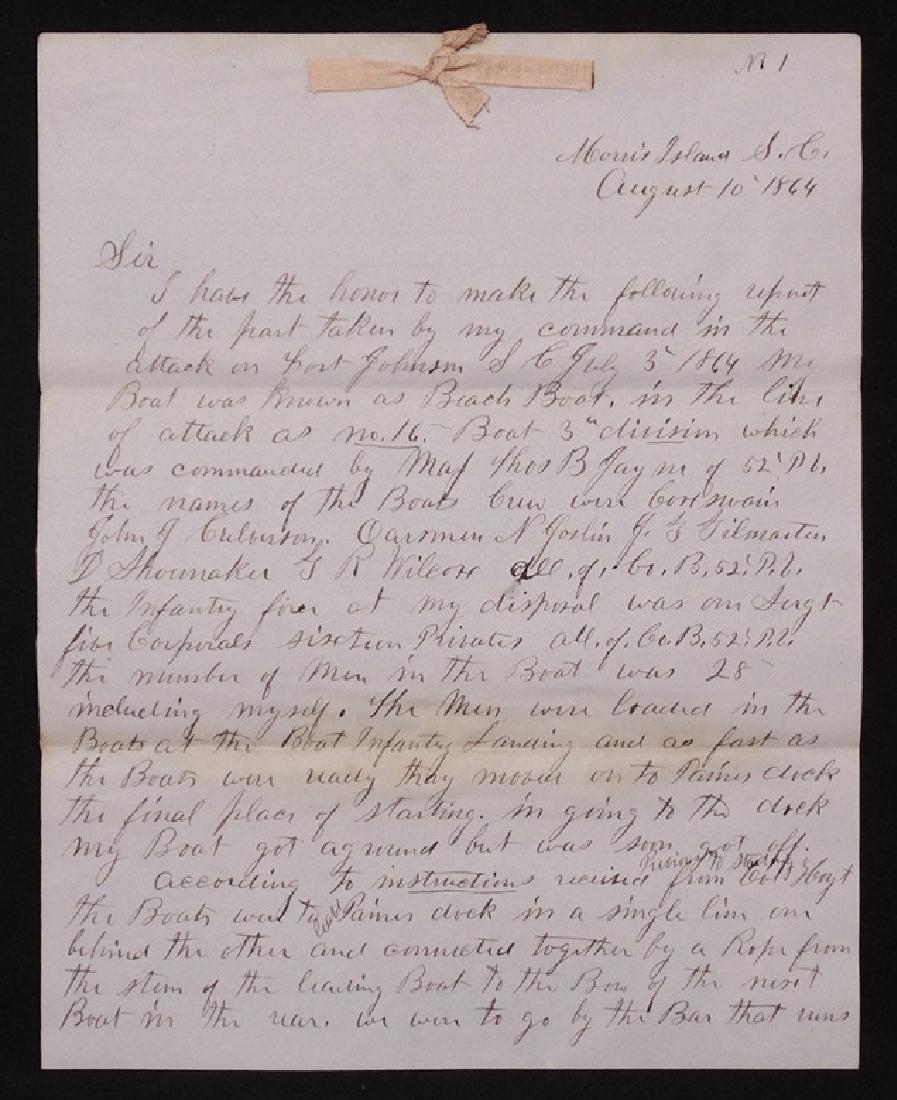 No 1
Morris Island S. C.
August 10" 1864
Sir
I have the honor to make the following report
of the part taken by my command in the
attack on Fort Johnson S C July 3" 1864 My
Boat was known as Beach Boat. in the line
of attack as no. 16. Boat 3" division which
was commanded by Maj Thos B Jayne of 52" P. V.
the names of the Boats Crew were Corswain
John J Culverson. Oarsmen N Joslin J. G Gilmarten
D Shoemaker G R Wilcox all. of. Co. B. 52" P. V.
the Infantry force at my disposal was one Sergt
five Corporals sixteen Privates all. of. Co. B. 52" P. V.
the number of Men in the Boat was 28
including myself. The Men were loaded in the
Boats at the Boat Infantry Landing and as fast as
the Boats were ready thay moved on to Paines dock
the final place of starting. in going to the dock
my Boat got aground but was soon got off.
Previous to starting
according to instructions received from Col Hoyt
the Boats were to leave Paines dock in a single line one
behind the other and connected together by a Rope from
the stern of the leading Boat to the Bow of the next
Boat in the rear. we were to go by the Bar that runs